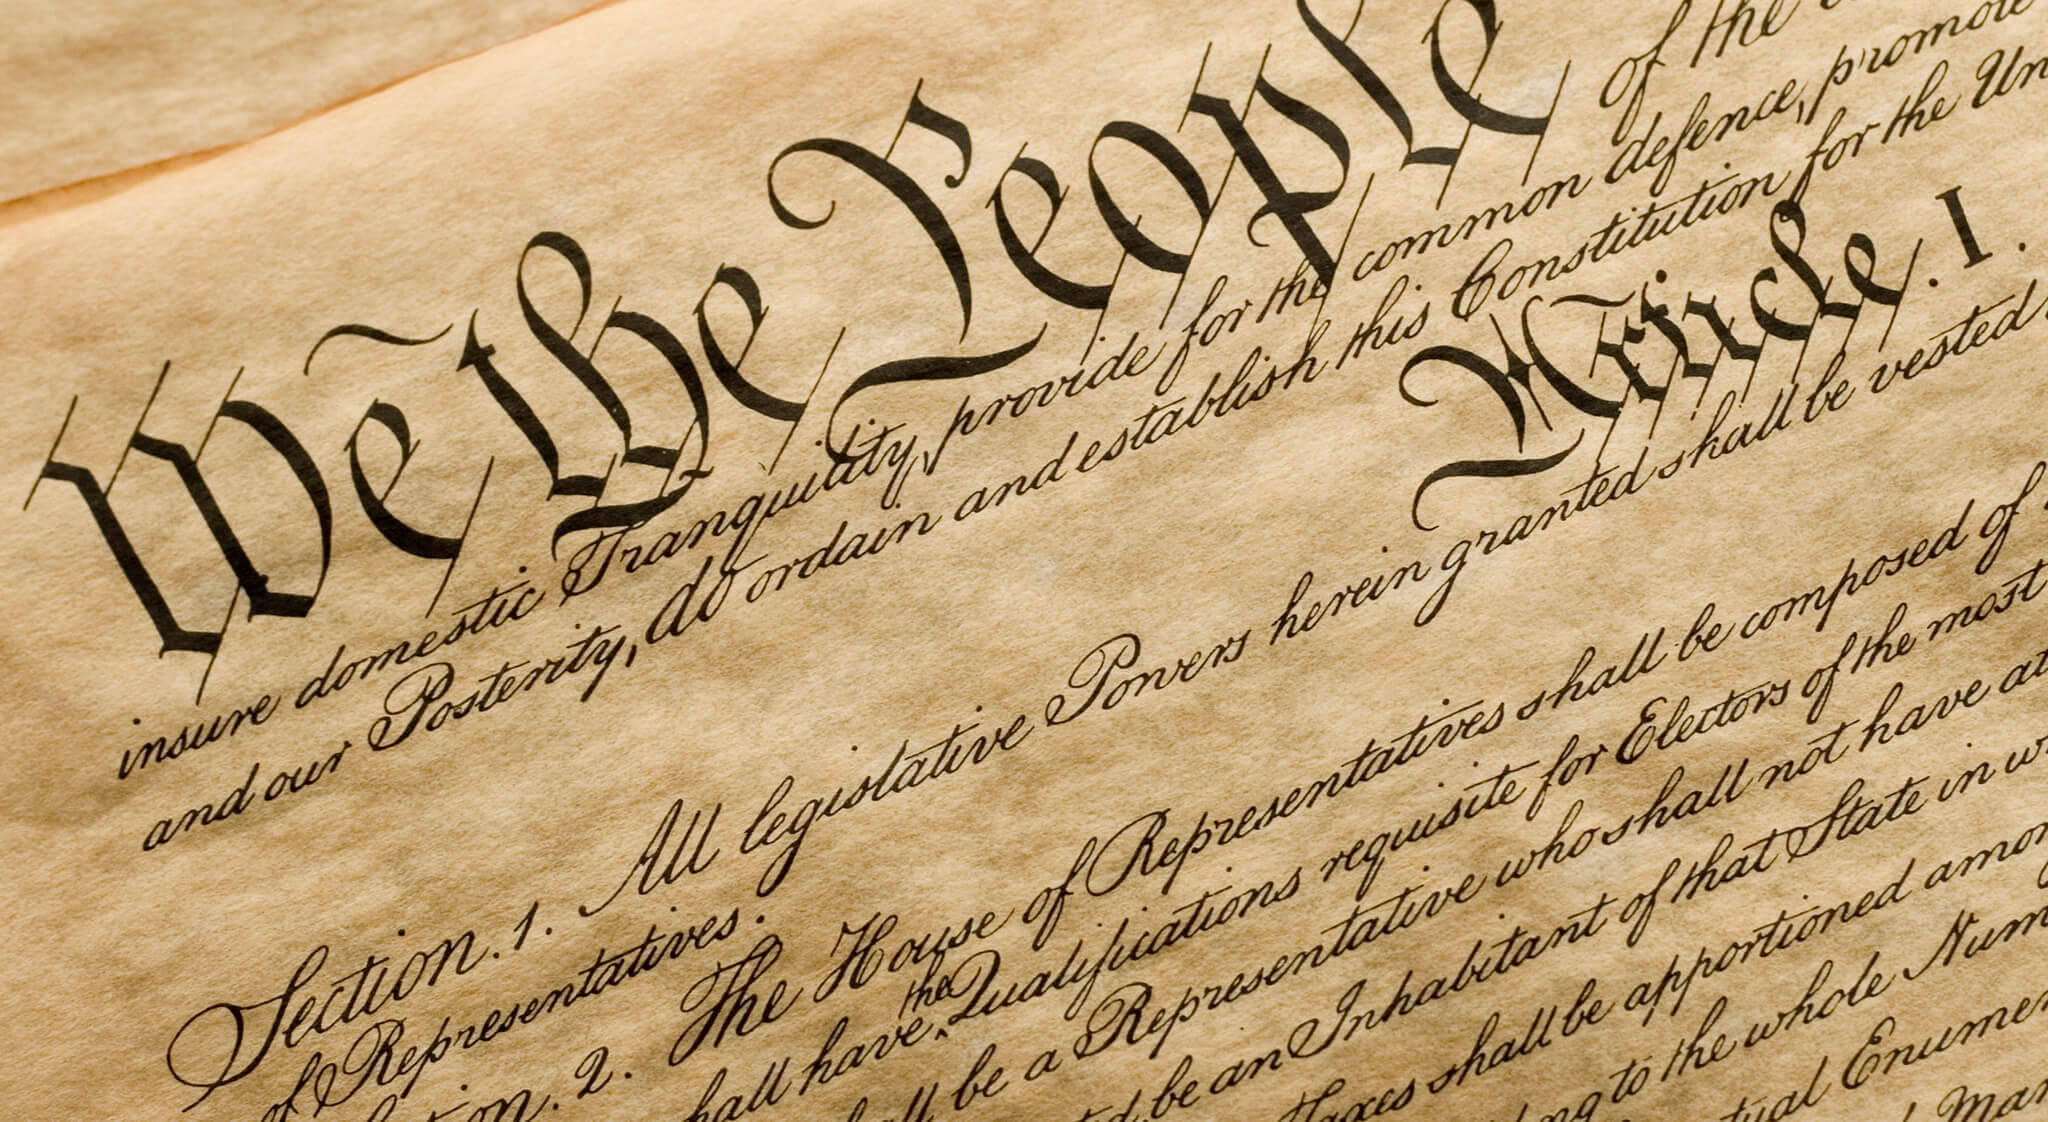 We the People of the
insure domestic Tranquility, provide for the common defence, promote
and our Posterity, do ordain and establish this Constitution for the Un
Article. I.
Section. 1. All legislative Powers herein granted shall be vested
of Representatives.
on. 2. The House of Representatives shall be composed of
the
hall have Qualifications requisite for Electors of the most
all be a Representative who shall not have at
ed, be an Inhabitant of that State in w
Taxes shall be apportioned amon
ng to the whole Num
tual Enumer